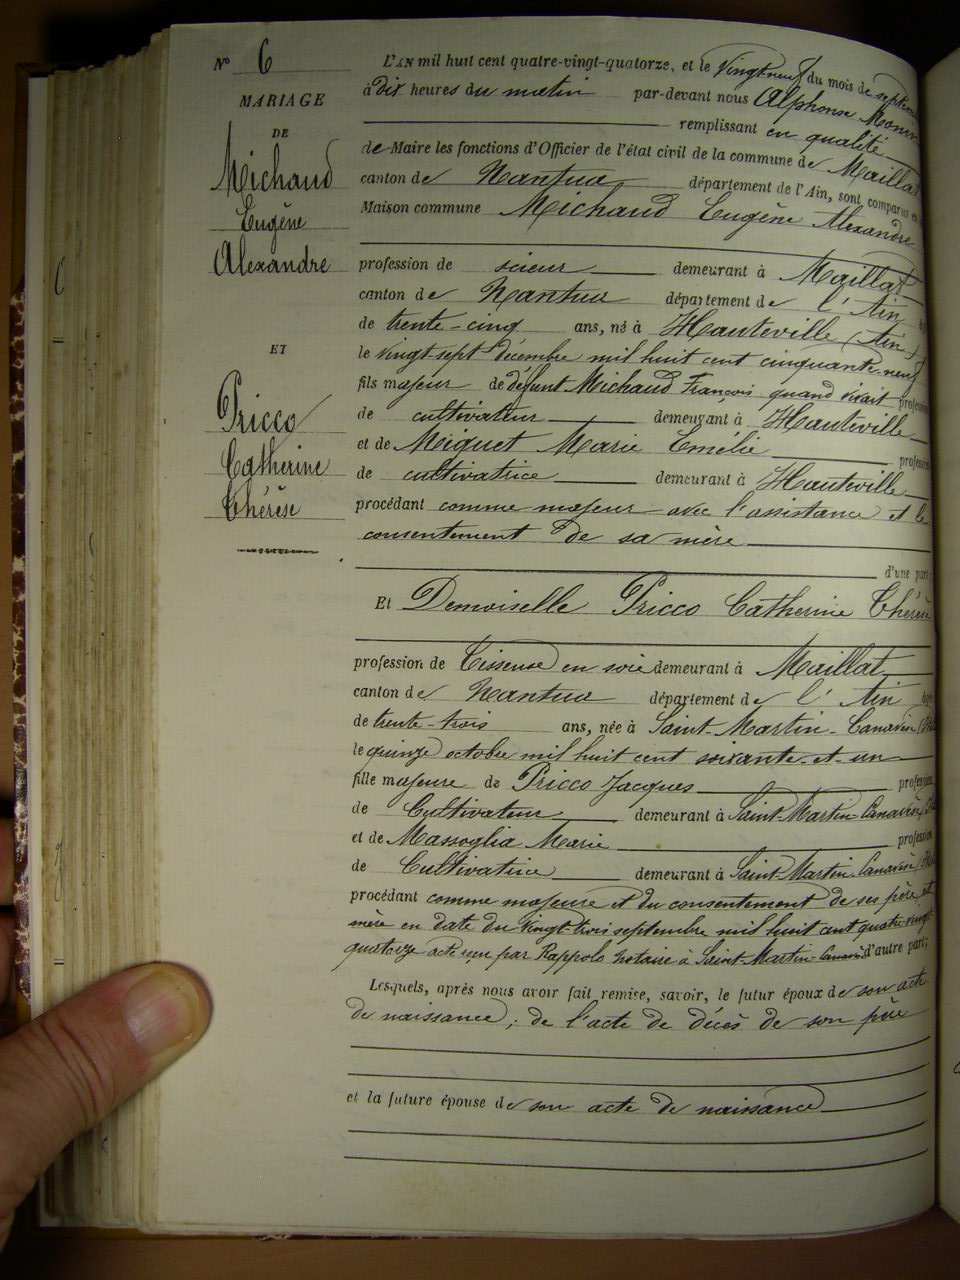 N° 6
MARIAGE
DE
Michaud
Eugène
Alexandre
ET
Pricco
Catherine
Thérèse
L'AN mil huit cent quatre-vingt-quatorze, et le Vingt neuf du mois de septem
à dix heures du matin par-devant nous Alphonse
remplissant en qualité
de Maire les fonctions d'Officier de l'état civil de la commune de Maillat
canton de Nantua département de l'Ain, sont comparus en
Maison commune Michaud Eugène Alexandre
profession de scieur demeurant à Maillat
canton de Nantua département de l'Ain
de trente-cinq ans, né à Hauteville (Ain)
le vingt sept décembre mil huit cent cinquante-neuf
fils majeur de défunt Michaud François quand vivait profession
de cultivateur demeurant à Hauteville
et de Miguet Marie Emélie profession
de cultivatrice demeurant à Hauteville
procédant comme majeur avec l'assistance et le
consentement de sa mère
d'une part;
Et Demoiselle Pricco Catherine Thérèse
profession de Tisseuse en soie demeurant à Maillat
canton de Nantua département de l'Ain
de trente-trois ans, née à Saint-Martin-Canavèse
le quinze octobre mil huit cent soixante-et-un
fille majeure de Pricco Jacques profession
de Cultivateur demeurant à Saint-Martin Canavèse
et de Massoglia Marie profession
de Cultivatrice demeurant à Saint-Martin Canavèse
procédant comme majeure et du consentement de ses père et
mère en date du vingt-trois septembre mil huit cent quatre-vingt
quatorze acte reçu par Rappolo notaire à Saint-Martin-Canavè d'autre part;
Lesquels, après nous avoir fait remise, savoir, le futur époux de son acte
de naissance; de l'acte de décès de son père
et la future épouse de son acte de naissance